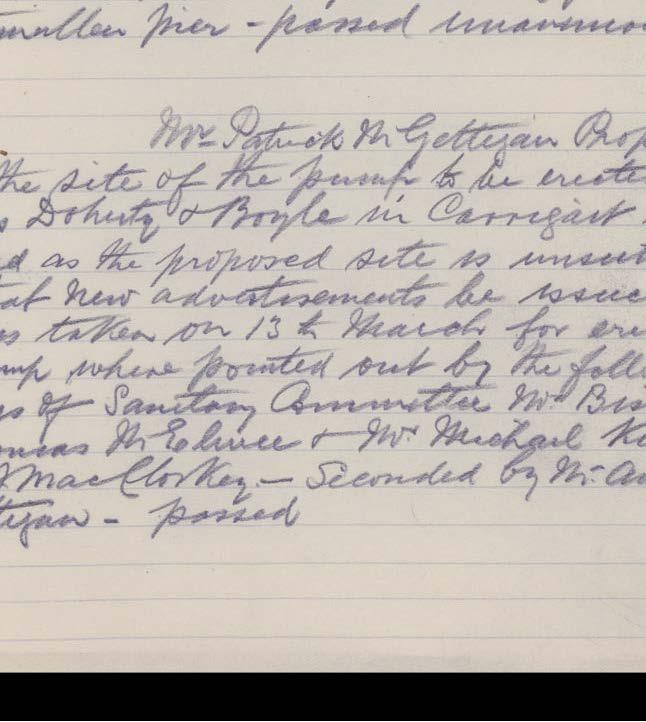 pier - passed unanimou
Mr Patrick McGettigan Prop
the site of the pump to be erecte
s Doherty & Boyle in Carrigart
d as the proposed site is unsuit
at new advertisements be issue
s taken on 13th March for ere
mp where pointed out by the follo
s of Sanitary Committee Mr
McElwee & Mr Michael
MacCloskey - Seconded by Mr
tigan - passed